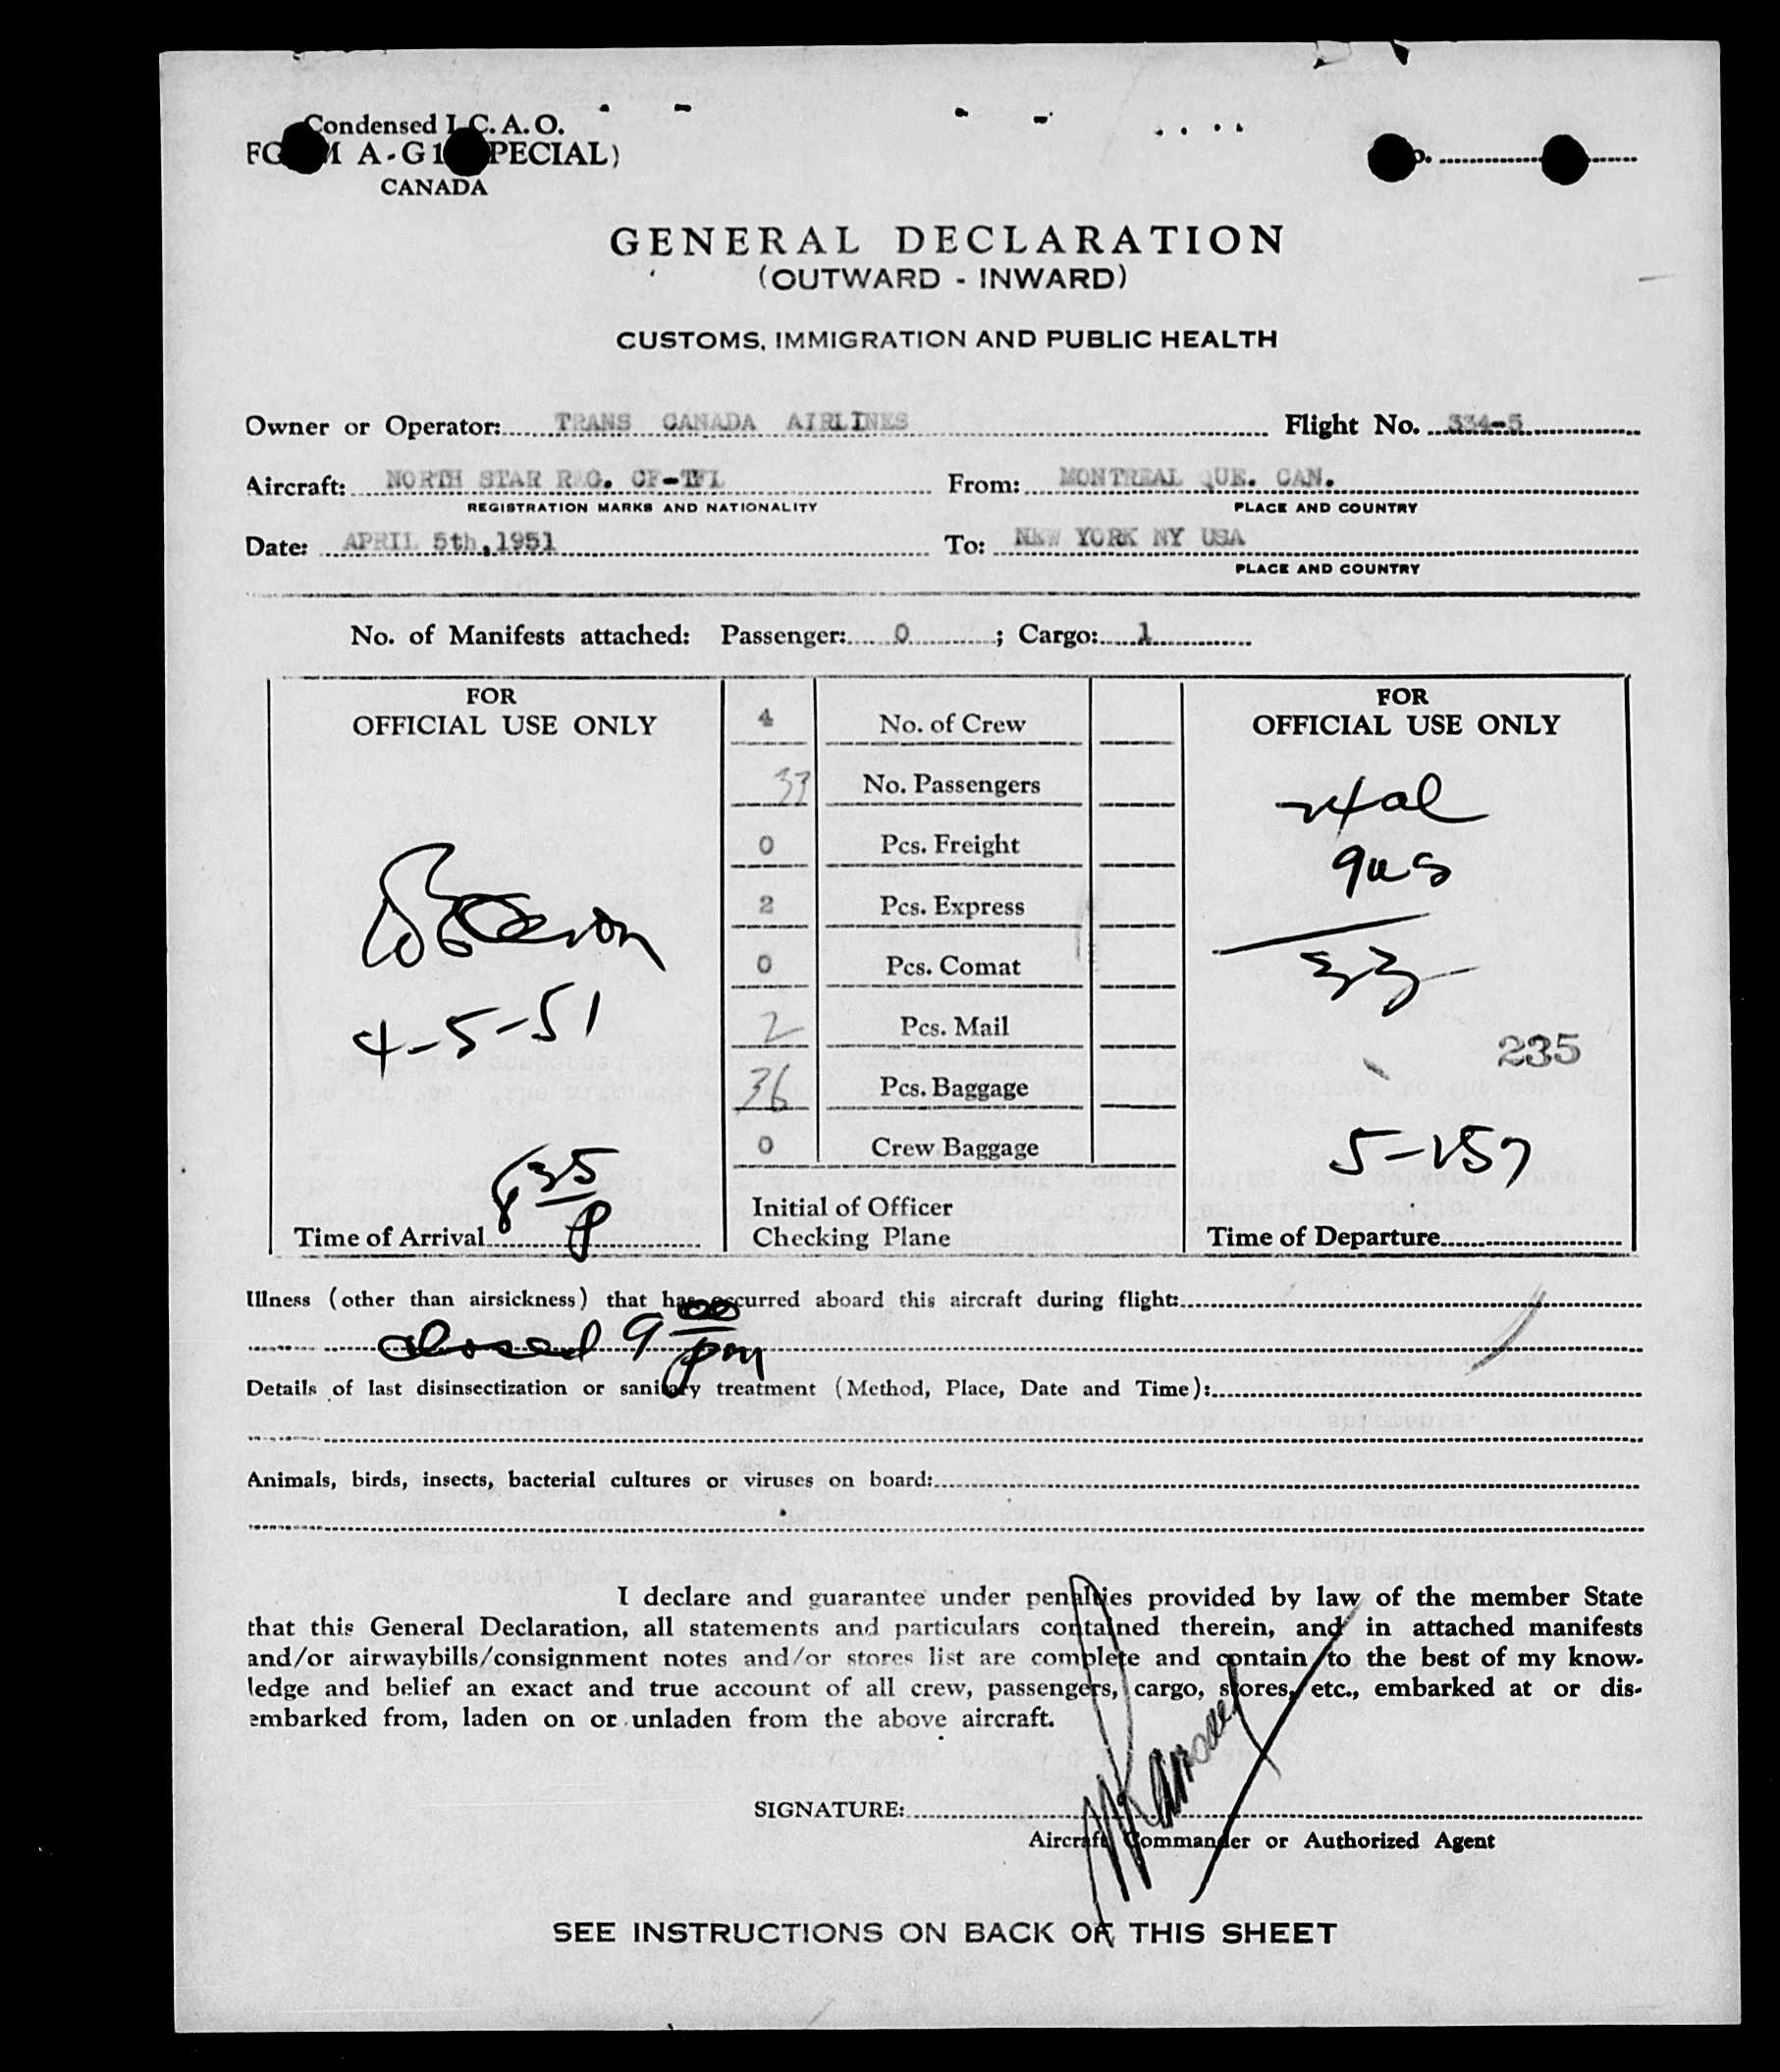 Condensed I.C.A.O.
FORM A-G1 (SPECIAL)
CANADA
GENERAL DECLARATION
(OUTWARD - INWARD)
CUSTOMS, IMMIGRATION AND PUBLIC HEALTH
Owner or Operator: TRANS CANADA AIRLINES Flight No. 334-5
Aircraft: NORTH STAR REG. CF-TFL From: MONTREAL QUE. CAN.
REGISTRATION MARKS AND NATIONALITY PLACE AND COUNTRY
Date: APRIL 5th, 1951 To: NEW YORK NY USA
PLACE AND COUNTRY
No. of Manifests attached: Passenger: 0 ; Cargo: 1
FOR
OFFICIAL USE ONLY
4-5-51
Time of Arrival 8 35 P
4 No. of Crew
No. Passengers
0 Pcs. Freight
2 Pcs. Express
0 Pcs. Comat
2 Pcs. Mail
36 Pcs. Baggage
0 Crew Baggage
Initial of Officer
Checking Plane
FOR
OFFICIAL USE ONLY
33
235
Time of Departure
Illness (other than airsickness) that has occurred aboard this aircraft during flight:
closed 9 00 pm
Details of last disinsectization or sanitary treatment (Method, Place, Date and Time):
Animals, birds, insects, bacterial cultures or viruses on board:
I declare and guarantee under penalties provided by law of the member State
that this General Declaration, all statements and particulars contained therein, and in attached manifests
and/or airwaybills/consignment notes and/or stores list are complete and contain to the best of my know-
ledge and belief an exact and true account of all crew, passengers, cargo, stores, etc., embarked at or dis-
embarked from, laden on or unladen from the above aircraft.
SIGNATURE:
Aircraft Commander or Authorized Agent
SEE INSTRUCTIONS ON BACK OF THIS SHEET